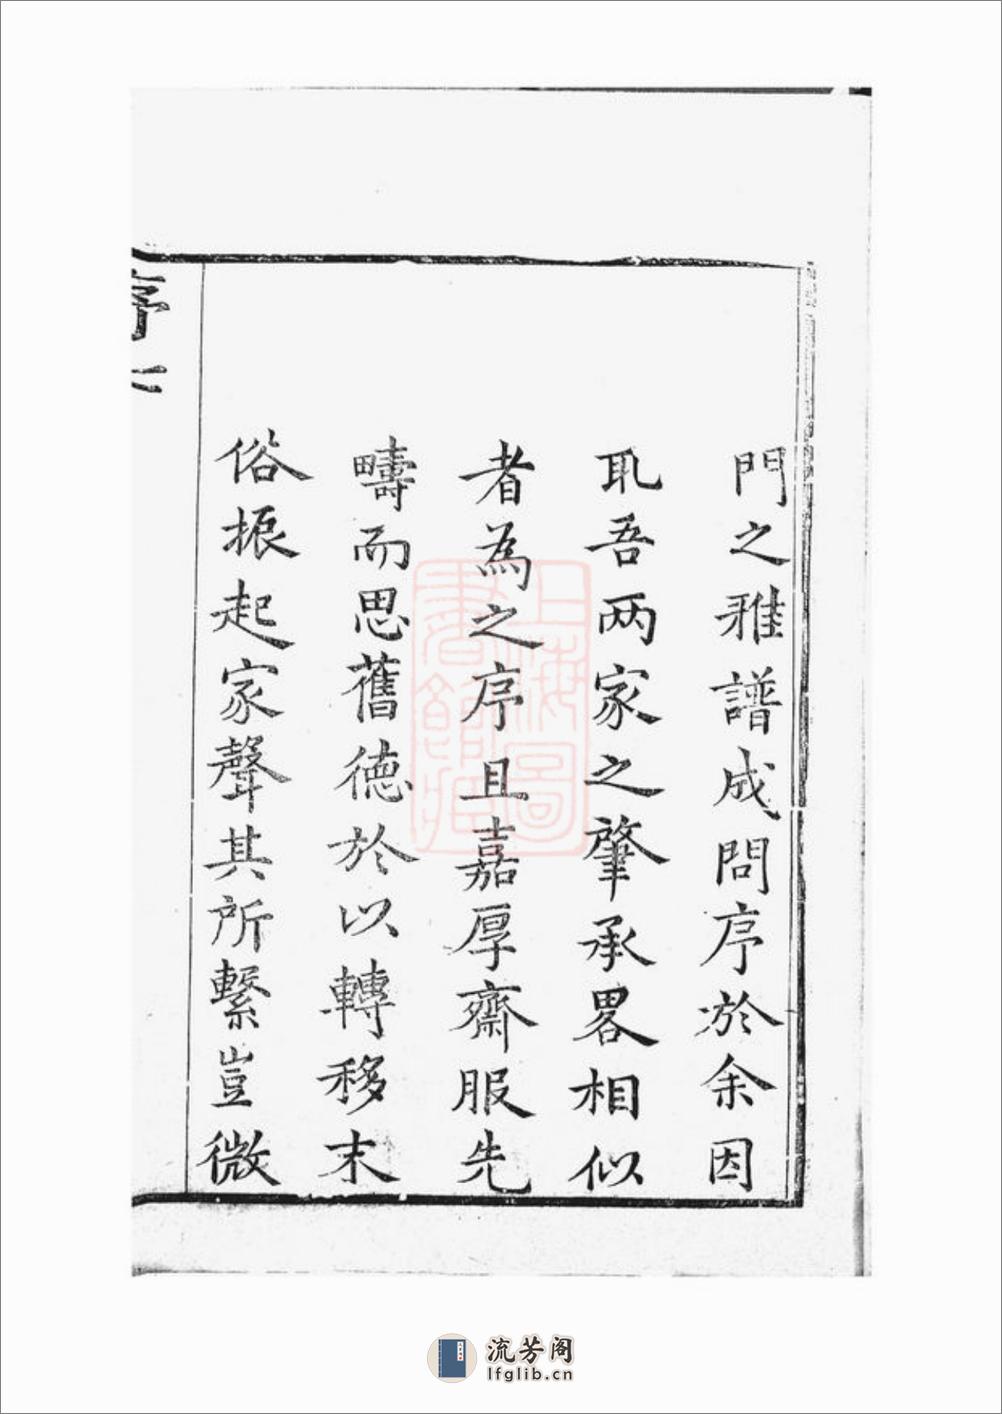 門之雅譜成問序於余因
吾两家之肇承畧相似
者為之序且嘉厚齋服先
疇而思舊德於以轉移末
俗振起家聲其所繫豈微
序
上海圖書館藏
流芳阁
lfglib.cn